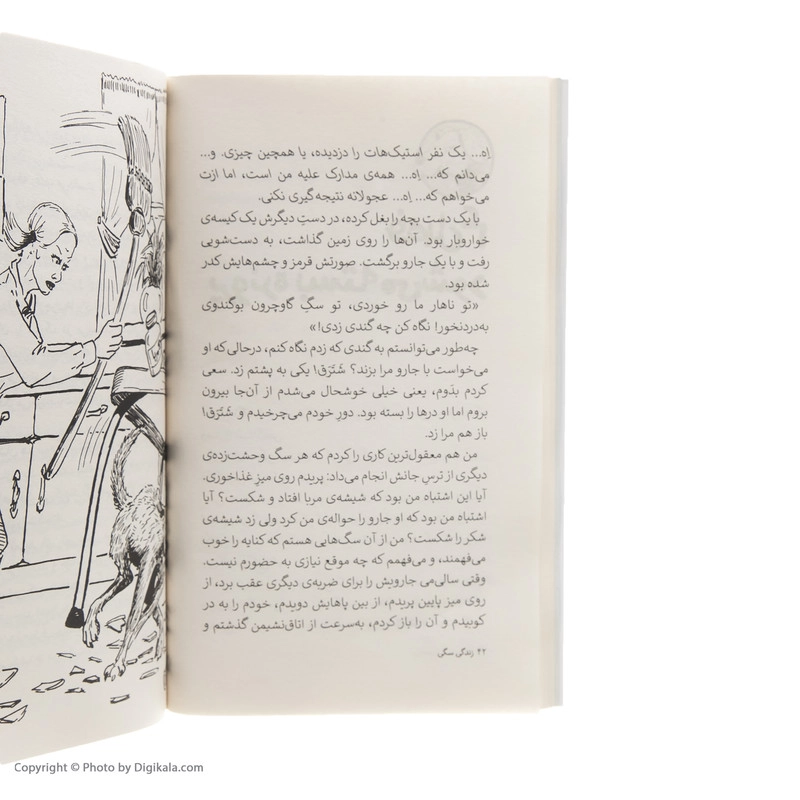 اِه... یک نفر استیک‌هات را دزدیده، یا همچین چیزی. و...
می‌دانم که... اِه... همه‌ی مدارک علیه من است، اما ازت
می‌خواهم که... اِه... عجولانه نتیجه‌گیری نکنی.
با یک دست بچه را بغل کرده، در دستِ دیگرش یک کیسه‌ی
خواروبار بود. آن‌ها را روی زمین گذاشت، به دست‌شویی
رفت و با یک جارو برگشت. صورتش قرمز و چشم‌هایش کدر
شده بود.
«تو ناهار ما رو خوردی، تو سگِ گاوچرون بوگندوی
به‌دردنخور! نگاه کن چه گندی زدی!»
چه‌طور می‌توانستم به گندی که زدم نگاه کنم، درحالی‌که او
می‌خواست با جارو مرا بزند؟ شَتَرَق! یکی به پشتم زد. سعی
کردم بدَوم، یعنی خیلی خوشحال می‌شدم از آن‌جا بیرون
بروم اما او درها را بسته بود. دورِ خودم می‌چرخیدم و شَتَرَق!
باز هم مرا زد.
من هم معقول‌ترین کاری را کردم که هر سگ وحشت‌زده‌ی
دیگری از ترسِ جانش انجام می‌داد: پریدم روی میزِ غذاخوری.
آیا این اشتباه من بود که شیشه‌ی مربا افتاد و شکست؟ آیا
اشتباه من بود که او جارو را حواله‌ی من کرد ولی زد شیشه‌ی
شکر را شکست؟ من از آن سگ‌هایی هستم که کنایه را خوب
می‌فهمند، و می‌فهمم که چه موقع نیازی به حضورم نیست.
وقتی سالی‌می جارویش را برای ضربه‌ی دیگری عقب برد، از
روی میز پایین پریدم، از بین پاهایش دویدم، خودم را به در
کوبیدم و آن را باز کردم، به‌سرعت از اتاق‌نشیمن گذشتم و
۴۲ زندگی سگی
Copyright © Photo by Digikala.com